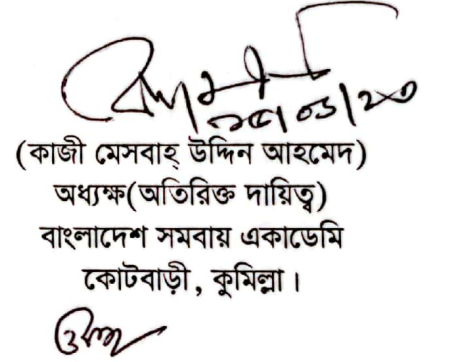 (কাজী মেসবাহ্ উদ্দিন আহমেদ)
অধ্যক্ষ(অতিরিক্ত দায়িত্ব)
বাংলাদেশ সমবায় একাডেমি
কোটবাড়ী, কুমিল্লা।